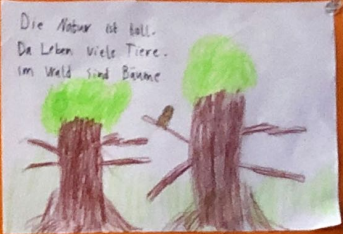 Die Natur ist toll.
Da Leben viele Tiere.
im Wald sind Bäume